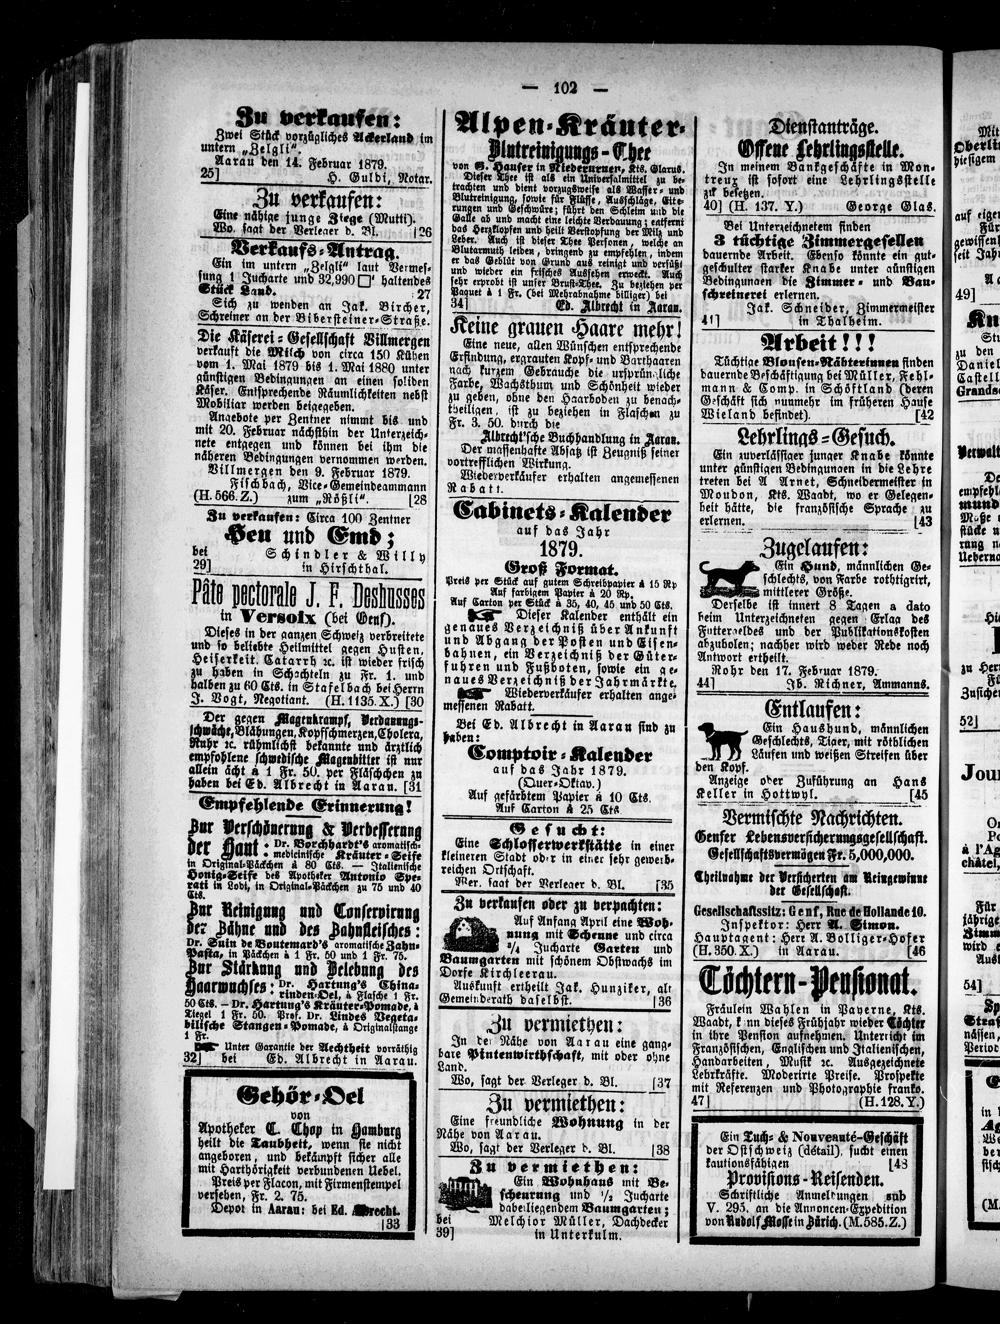 — 102 —
Zu verkaufen:
Zwei Stück vorzügliches Ackerland im
untern „Zelgli".
Aarau den 14. Februar 1879.
25] H. Guldi, Notar.
Zu verkaufen:
Eine nähige junge Ziege (Mutti).
Wo, sagt der Verleger d. Bl. [26
Verkaufs-Antrag.
Ein im untern „Zelgli" laut Vermes-
sung 1 Jucharte und 32,990 □' haltendes
Stück Land. 27
Sich zu wenden an Jak. Bircher,
Schreiner an der Bibersteiner-Straße.
Die Käserei-Gesellschaft Villmergen
verkauft die Milch von circa 150 Kühen
vom 1. Mai 1879 bis 1. Mai 1880 unter
günstigen Bedingungen an einen soliden
Käser. Entsprechende Räumlichkeiten nebst
Mobiliar werden beigegeben.
Angebote per Zentner nimmt bis und
mit 20. Februar nächsthin der Unterzeich-
nete entgegen und können bei ihm die
näheren Bedingungen vernommen werden.
Villmergen den 9. Februar 1879.
Fischbach, Vice-Gemeindeammann
(H. 566. Z.) zum „Rößli". [28
Zu verkaufen: Circa 100 Zentner
Heu und Emd;
bei Schindler & Willy
29] in Hirschthal.
Pâte pectorale J. F. Desbusses
in Versoix (bei Genf).
Dieses in der ganzen Schweiz verbreitete
und so beliebte Heilmittel gegen Husten,
Heiserkeit, Catarrh ꝛc. ist wieder frisch
zu haben in Schachteln zu Fr. 1. und
halben zu 60 Cts. in Stafelbach bei Herrn
J. Vogt, Negotiant. (H. 1135. X.) [30
Der gegen Magenkrampf, Verdauungs-
schwäche, Blähungen, Kopfschmerzen, Cholera,
Ruhr ꝛc. rühmlichst bekannte und ärztlich
empfohlene schwedische Magenbitter ist nur
allein ächt à 1 Fr. 50. per Fläschchen zu
haben bei Ed. Albrecht in Aarau. [31
Empfehlende Erinnerung!
Zur Verschönerung & Verbesserung
der Haut: Dr. Borchardt's aromatisch-
medicinische Kräuter-Seife
in Original-Päckchen à 80 Cts. — Italienische
Honig-Seife des Apotheker Antonio Spe-
rati in Lodi, in Original-Päckchen zu 75 und 40
Cts.
Zur Reinigung und Conservirung
der Zähne und des Zahnfleisches:
Dr. Suin de Boutemard's aromatische Zahn-
Pasta, in Päckchen à 1 Fr. 50 und 1 Fr. 75.
Zur Stärkung und Belebung des
Haarwuchses: Dr. Hartung's China-
rinden-Oel, à Flasche 1 Fr.
50 Cts. — Dr. Hartung's Kräuter-Pomade, à
Tiegel 1 Fr. 50. Prof. Dr. Lindes Vegeta-
bilische Stangen-Pomade, à Originalstange
1 Fr.
Unter Garantie der Aechtheit vorräthig
32] bei Ed. Albrecht in Aarau.
Gehör-Oel
von
Apotheker C. Chop in Hamburg
heilt die Taubheit, wenn sie nicht
angeboren, und bekämpft sicher alle
mit Harthörigkeit verbundenen Uebel.
Preis per Flacon, mit Firmenstempel
versehen, Fr. 2. 75.
Depot in Aarau: bei Ed. Albrecht.
[33
Alpen-Kräuter-
Blutreinigungs-Thee
von G. Hauser in Niederurnen, Kts. Glarus.
Dieser Thee ist als ein Universalmittel zu be-
trachten und dient vorzugsweise als Wasser- und
Blutreinigung, sowie für Flüsse, Ausschläge, Eite-
rungen und Geschwüre; führt den Schleim und die
Galle ab und macht eine leichte Verdauung; entfernt
das Herzklopfen und heilt Verstopfung der Milz und
Leber. Auch ist dieser Thee Personen, welche an
Blutarmuth leiden, dringend zu empfehlen, indem
er das Geblüt von Grund aus reinigt und versüßt
und wieder ein frisches Aussehen erweckt. Auch
sehr erprobt ist unser Brust-Thee. Zu beziehen per
Paquet à 1 Fr. (bei Mehrabnahme billiger) bei
34] Ed. Albrecht in Aarau.
Keine grauen Haare mehr!
Eine neue, allen Wünschen entsprechende
Erfindung, ergrauten Kopf- und Barthaaren
nach kurzem Gebrauche die ursprüngliche
Farbe, Wachsthum und Schönheit wieder
zu geben, ohne den Haarboden zu benach-
theiligen, ist zu beziehen in Flaschen zu
Fr. 3. 50. durch die
Albrecht'sche Buchhandlung in Aarau.
Der massenhafte Absatz ist Zeugniß seiner
vortrefflichen Wirkung.
Wiederverkäufer erhalten angemessenen
Rabatt.
Cabinets-Kalender
auf das Jahr
1879.
Groß Format.
Preis per Stück auf gutem Schreibpapier à 15 Rp
Auf farbigem Papier à 20 Rp.
Auf Carton per Stück à 35, 40, 45 und 50 Cts.
Dieser Kalender enthält ein
genaues Verzeichniß über Ankunft
und Abgang der Posten und Eisen-
bahnen, ein Verzeichniß der Güter-
fuhren und Fußboten, sowie ein ge-
naues Verzeichniß der Jahrmärkte.
Wiederverkäufer erhalten ange-
messenen Rabatt.
Bei Ed. Albrecht in Aarau sind zu
haben:
Comptoir-Kalender
auf das Jahr 1879.
(Quer-Oktav.)
Auf gefärbtem Papier à 10 Cts.
Auf Carton à 25 Cts.
Gesucht:
Eine Schlosserwerkstätte in einer
kleineren Stadt oder in einer sehr gewerb-
reichen Ortschaft.
Wer, sagt der Verleger d. Bl. [35
Zu verkaufen oder zu verpachten:
Auf Anfang April eine Woh-
nung mit Scheune und circa
¾ Jucharte Garten und
Baumgarten mit schönem Obstwachs im
Dorfe Kirchleerau.
Auskunft ertheilt Jak. Hunziker, alt
Gemeinderath daselbst. [36
Zu vermiethen:
In der Nähe von Aarau eine gang-
bare Pintenwirthschaft, mit oder ohne
Land.
Wo, sagt der Verleger d. Bl. [37
Zu vermiethen:
Eine freundliche Wohnung in der
Nähe von Aarau.
Wo, sagt der Verleger d. Bl. [38
Zu vermiethen:
Ein Wohnhaus mit Be-
scheurung und ½ Jucharte
dabeiliegendem Baumgarten;
bei Melchior Müller, Dachdecker
39] in Unterkulm.
Dienstanträge.
Offene Lehrlingsstelle.
In meinem Bankgeschäfte in Mon-
treux ist sofort eine Lehrlingsstelle
zu besetzen.
40] (H. 137. Y.) George Glas.
Bei Unterzeichnetem finden
3 tüchtige Zimmergesellen
dauernde Arbeit. Ebenso könnte ein gut-
geschulter starker Knabe unter günstigen
Bedingungen die Zimmer- und Bau-
schreinerei erlernen.
Jak. Schneider, Zimmermeister
41] in Thalheim.
Arbeit!!!
Tüchtige Blousen-Näherinnen finden
dauernde Beschäftigung bei Müller, Fehl-
mann & Comp. in Schöftland (deren
Geschäft sich nunmehr im früheren Hause
Wieland befindet). [42
Lehrlings-Gesuch.
Ein zuverlässiger junger Knabe könnte
unter günstigen Bedingungen in die Lehre
treten bei A Arnet, Schneidermeister in
Moudon, Kts. Waadt, wo er Gelegen-
heit hätte, die französische Sprache zu
erlernen. [43
Zugelaufen:
Ein Hund, männlichen Ge-
schlechts, von Farbe rothtigrirt,
mittlerer Größe.
Derselbe ist innert 8 Tagen a dato
beim Unterzeichneten gegen Erlag des
Futtergeldes und der Publikationskosten
abzuholen; nachher wird weder Rede noch
Antwort ertheilt.
Rohr den 17. Februar 1879.
44] Jb. Richner, Ammanns.
Entlaufen:
Ein Haushund, männlichen
Geschlechts, Tiger, mit röthlichen
Läufen und weißen Streifen über
den Kopf.
Anzeige oder Zuführung an Hans
Keller in Hottwyl. [45
Vermischte Nachrichten.
Genfer Lebensversicherungsgesellschaft.
Gesellschaftsvermögen Fr. 5,000,000.
Theilnahme der Versicherten am Reingewinne
der Gesellschaft.
Gesellschaftssitz: Genf, Rue de Hollande 10.
Inspektor: Herr A. Simon.
Hauptagent: Herr A. Bolliger-Hofer
(H. 350. X.) in Aarau. [46
Töchtern-Pensionat.
Fräulein Wahlen in Payerne, Kts.
Waadt, kann dieses Frühjahr wieder Töchter
in ihre Pension aufnehmen. Unterricht im
Französischen, Englischen und Italienischen,
Handarbeiten, Musik ꝛc. Ausgezeichnete
Lehrkräfte. Moderirte Preise. Prospekte
mit Referenzen und Photographie franko.
47] (H. 128. Y.)
Ein Tuch- & Nouveauté-Geschäft
der Ostschweiz (détail), sucht einen
kautionsfähigen [48
Provisions-Reisenden.
Schriftliche Anmeldungen sub
V. 295. an die Annoncen-Expedition
von Rudolf Mosse in Zürich. (M. 585. Z.)
49]
52]
54]